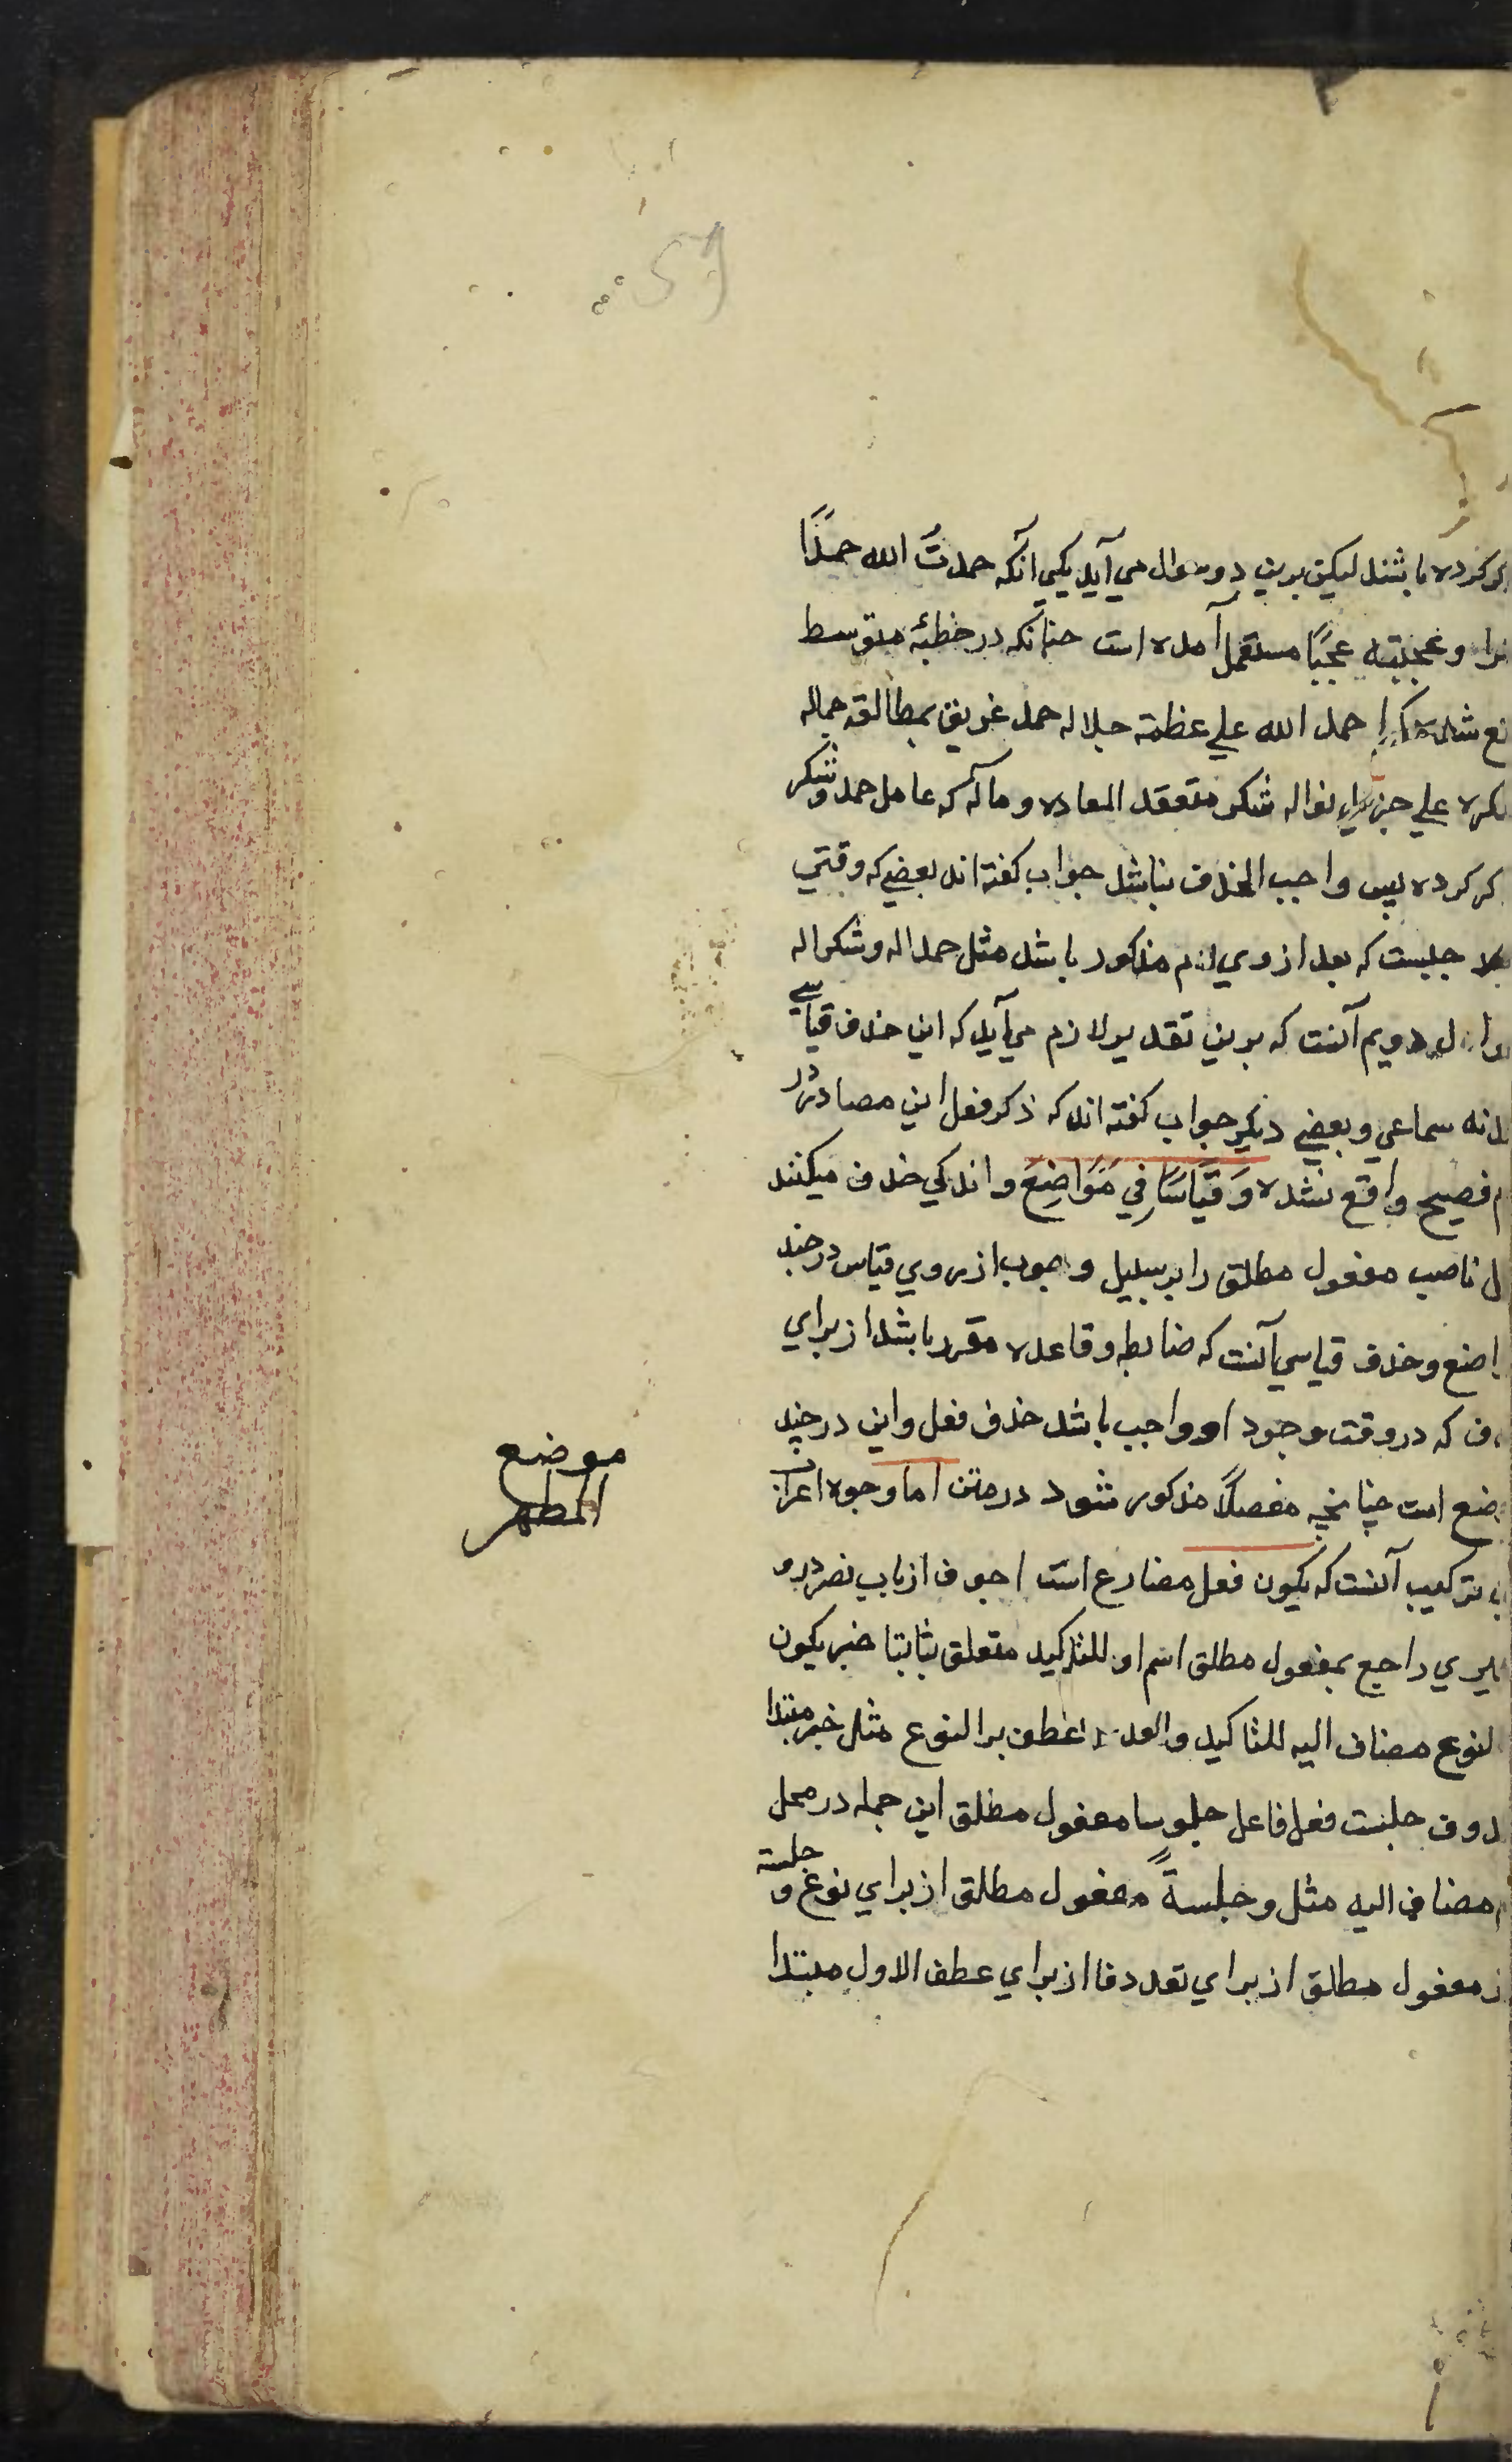 کرده باشند لیکن برین دو سوال می آید یکی آنکه حمدتُ الله حمدًا
وعجبته عجبًا مستعمل آمده است چنانکه در خطبۀ متوسط
حمد الله علی عظمة جلاله حمد غریق بمطالقه جماله
علی جزیل نواله شکر متعقد المعاده وماله که عامل حمد وشکر
کرده پس واجب الحذف نباشد جواب کفته اند بعضی که وقتی
جبست که بعد از وی لام مذکور باشد مثل حمدا له وشکرا له
دویم آنست که برین تقدیر لازم می آید که این حذف قیاسی
نه سماعی وبعضی دیکر جواب کفته اند که ذکر فعل این مصادر در
فصیح واقع نشده وَقِیَاسًا فِي مَوَاضِعَ واندکی حذف میکنند
ناصب مفعول مطلق را بر سبیل وجوب از روی قیاس در چند
وحذف قیاسی آنست که ضابطه وقاعده مقرر باشد از برای
که در وقت وجود او واجب باشد حذف فعل واین در چند
است چنانچه مفصلًا مذکور شود در متن اما وجوه اعراب
ترکیب آنست که یکون فعل مضارع است اجوف از باب نصر درو
راجع بمفعول مطلق اسم او للتاکید متعلق بثابتا خبر یکون
لنوع مضاف الیه للتاکید والعدد عطف بر النوع مثل خبر مبتدا
جلست فعل فاعل جلوسا مفعول مطلق این جمله در محل
مضاف الیه مثل وجلسةً مفعول مطلق از برای نوع و جلسة
مفعول مطلق از برای تعدد فا از برای عطف الاول مبتدا
موضع
المطهر